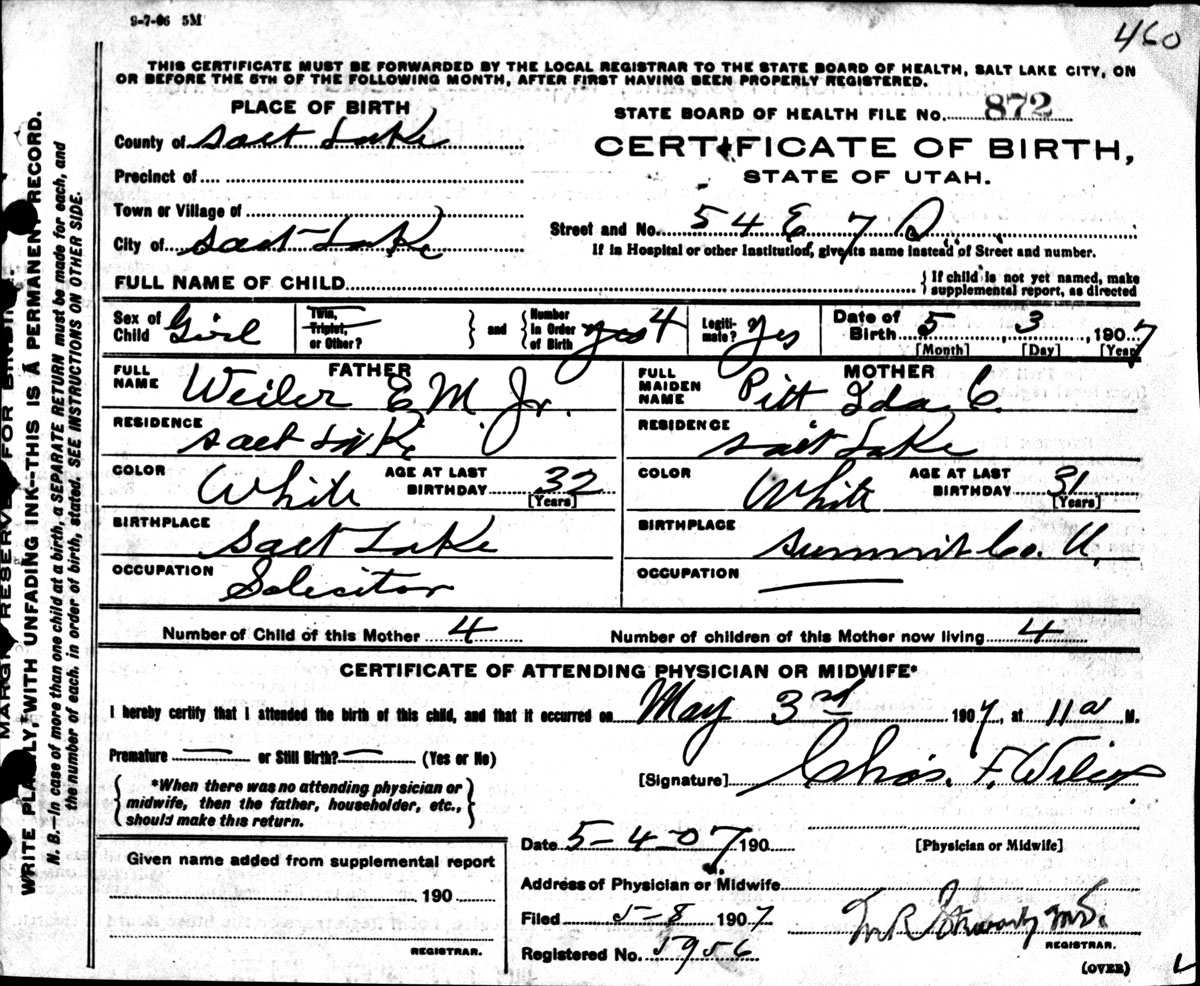 9-7-06 5M
460
THIS CERTIFICATE MUST BE FORWARDED BY THE LOCAL REGISTRAR TO THE STATE BOARD OF HEALTH, SALT LAKE CITY, ON
OR BEFORE THE 5TH OF THE FOLLOWING MONTH, AFTER FIRST HAVING BEEN PROPERLY REGISTERED.
PLACE OF BIRTH
STATE BOARD OF HEALTH FILE No. 872
County of Salt Lake
CERTIFICATE OF BIRTH,
STATE OF UTAH.
Precinct of
Town or Village of
Street and No. 54 E 7 S
City of Salt Lake
If in Hospital or other Institution, give its name instead of Street and number.
FULL NAME OF CHILD
{ If child is not yet named, make
supplemental report, as directed
Sex of Child Girl
Twin, Triplet, or Other? } and { Number in Order of Birth yes 4
Legitimate? Yes
Date of Birth 5, 3, 1907
[Month] [Day] [Year]
FATHER
FULL NAME Weiler E M Jr.
MOTHER
FULL MAIDEN NAME Pitt Ida C.
RESIDENCE Salt Lake
RESIDENCE Salt Lake
COLOR White AGE AT LAST BIRTHDAY 32 [Years]
COLOR White AGE AT LAST BIRTHDAY 31 [Years]
BIRTHPLACE Salt Lake
BIRTHPLACE Summit Co. U.
OCCUPATION Solicitor
OCCUPATION
Number of Child of this Mother 4
Number of children of this Mother now living 4
CERTIFICATE OF ATTENDING PHYSICIAN OR MIDWIFE*
I hereby certify that I attended the birth of this child, and that it occurred on May 3rd 1907, at 11 a M.
Premature — or Still Birth? — (Yes or No)
[Signature] Chas. F. Wilcox
{ *When there was no attending physician or
midwife, then the father, householder, etc.,
should make this return. }
Date 5-4-07 190
[Physician or Midwife]
Given name added from supplemental report
190
REGISTRAR.
Address of Physician or Midwife
Filed 5-8 1907
M.D.
REGISTRAR.
Registered No. 1956
(OVER)
MARGIN RESERVED FOR BINDING.
WRITE PLAINLY, WITH UNFADING INK--THIS IS A PERMANENT RECORD.
N. B.—In case of more than one child at a birth, a SEPARATE RETURN must be made for each, and
the number of each, in order of birth, stated. SEE INSTRUCTIONS ON OTHER SIDE.